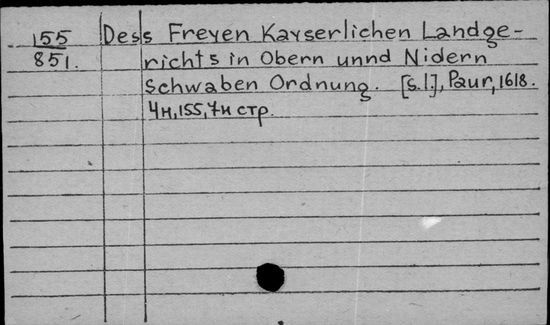 155 Dess Freyen Kayserlichen Landge-
851. richts in Obern unnd Nidern
Schwaben Ordnung. [s.l.], Paur, 1618.
4н, 155, 7н стр.